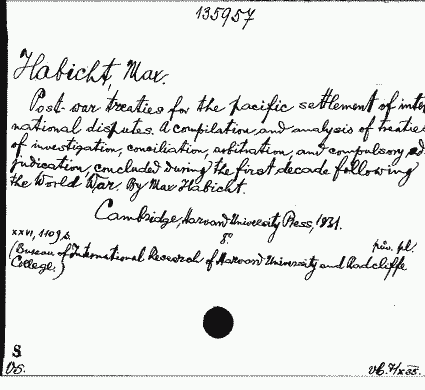 135957
Habicht, Max.
Post-war treaties for the pacific settlement of inter
national disputes. A compilation and analysis of treaties
of investigation, conciliation, arbitration, and compulsory ad
judication, concluded during the first decade following
the World War. By Max Habicht.
Cambridge, Harvard University Press, 1931.
xxvi, 1109 s. 8°
(Bureau of International Research of Harvard University and Radcliffe
College.)
S